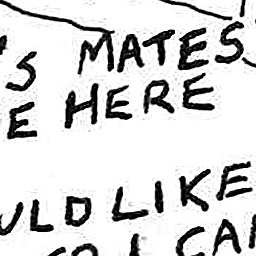 'S MATES
E HERE
ULD LIKE
I CA